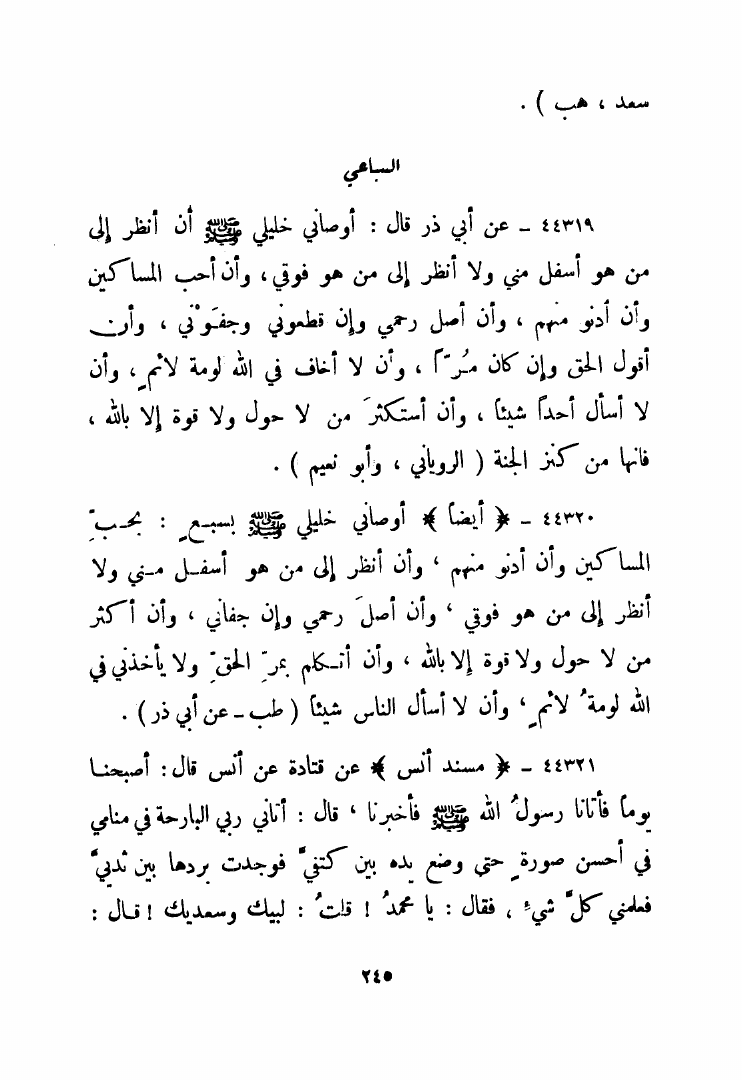 سعد ، هب ) .
السباعي
٤٤٣١٩ ـ عن أبي ذر قال : أوصاني خليلي ﷺ أن أنظر إلى
من هو أسفل مني ولا أنظر إلى من هو فوقي ، وأن أحب المساكين
وأن أدنو منهم ، وأن أصل رحمي وإن قطعوني وجفَوْني ، وأن
أقول الحق وإن كان مُرّاً ، وأن لا أخاف في الله لومة لائمٍ ، وأن
لا أسأل أحداً شيئاً ، وأن أستكثرَ من لا حول ولا قوة إلا بالله ،
فانها من كنز الجنة ( الروياني ، وأبو نعيم ) .
٤٤٣٢٠ ـ ﴿ أيضاً ﴾ أوصاني خليلي ﷺ بسبعٍ : بحبِّ
المساكين وأن أدنو منهم ، وأن أنظر إلى من هو أسفل مني ولا
أنظر إلى من هو فوقي ، وأن أصلَ رحمي وإن جفاني ، وأن أكثر
من لا حول ولا قوة إلا بالله ، وأن أتكلم بمرِّ الحقِّ ولا يأخذني في
الله لومةُ لائمٍ ، وأن لا أسأل الناس شيئاً ( طب ـ عن أبي ذر ) .
٤٤٣٢١ ـ ﴿ مسند أنس ﴾ عن قتادة عن أنس قال : أصبحنا
يوماً فأتانا رسولُ الله ﷺ فأخبرنا ، قال : أتاني ربي البارحة في منامي
في أحسن صورةٍ حتى وضع يده بين كتفيَّ فوجدت بردها بين ثدييَّ
فعلمني كلَّ شيءٍ ، فقال : يا محمدُ ! قلتُ : لبيك وسعديك ! قال :
٢٤٥